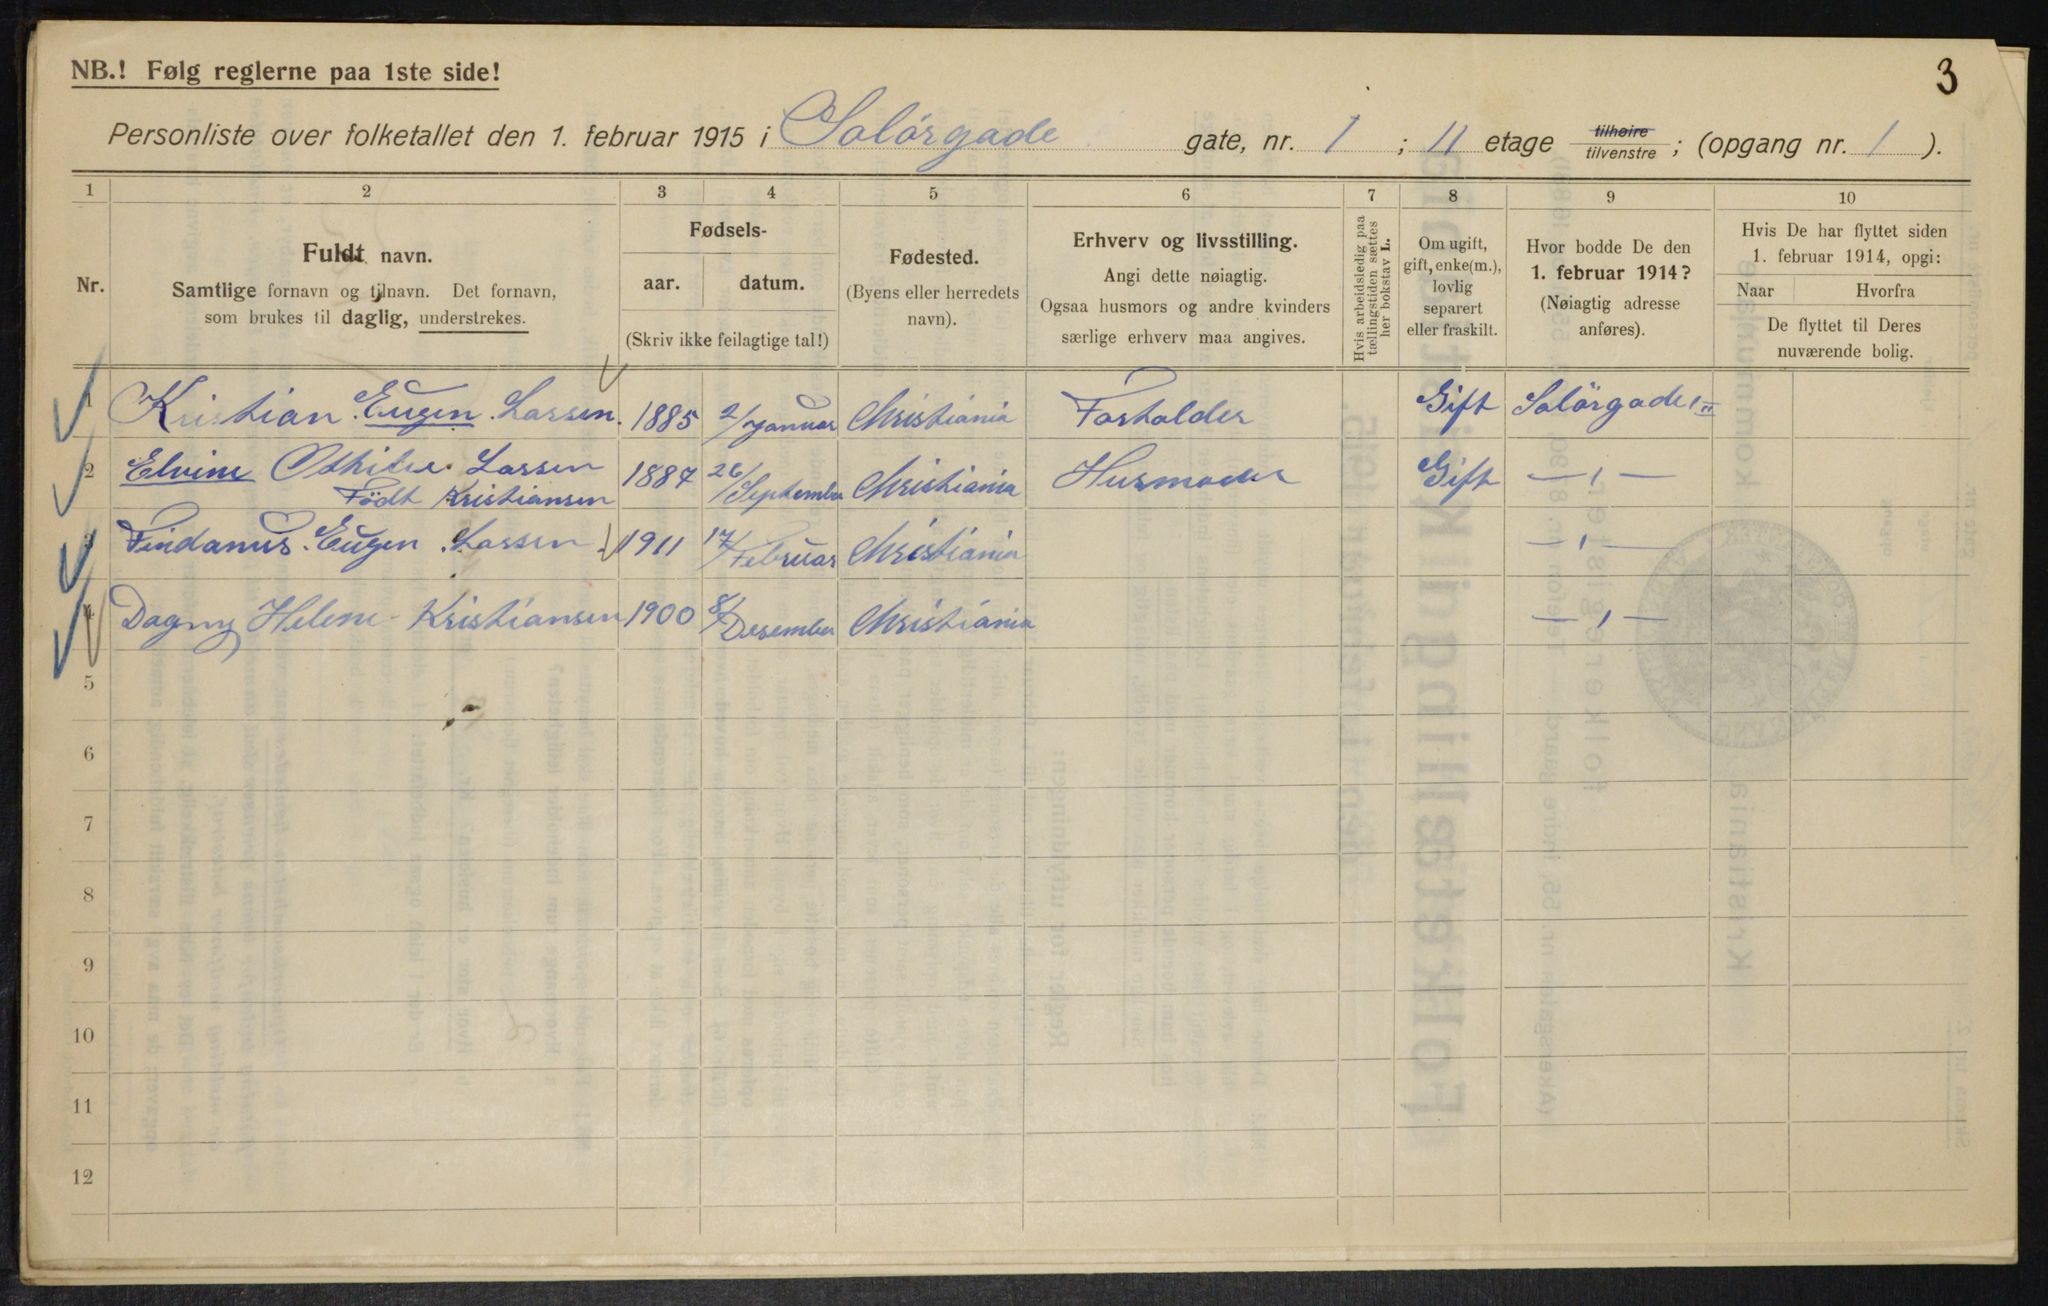 3
NB.! Følg reglerne paa 1ste side!
Personliste over folketallet den 1. februar 1915 i Solörgade gate, nr. 1 ; II etage tilhøire tilvenstre ; (opgang nr. 1 ).
1 2 3 4 5 6 7 8 9 10
Nr.
Fuldt navn.
Samtlige fornavn og tilnavn. Det fornavn,
som brukes til daglig, understrekes.
Fødsels-
aar. datum.
(Skriv ikke feilagtige tal!)
Fødested.
(Byens eller herredets
navn).
Erhverv og livsstilling.
Angi dette nøiagtig.
Ogsaa husmors og andre kvinders
særlige erhverv maa angives.
Hvis arbeidsledig paa
tællingstiden sættes
her bokstav L.
Om ugift,
gift, enke(m.),
lovlig
separert
eller fraskilt.
Hvor bodde De den
1. februar 1914?
(Nøiagtig adresse
anføres).
Hvis De har flyttet siden
1. februar 1914, opgi:
Naar Hvorfra
De flyttet til Deres
nuværende bolig.
1 Kristian Eugen Larsen. 1885 2/Januar Christiania Gift Solörgade 1 II
2 Elvine Larsen 1887 26/September Christiania Husmoder Gift — 1 —
Födt Kristiansen
3 Eugen Larsen 1911 17/Februar Christiania — 1 —
4 Dagny Helene Kristiansen 1900 8/Desember Christiania — 1 —
5
6
7
8
9
10
11
12